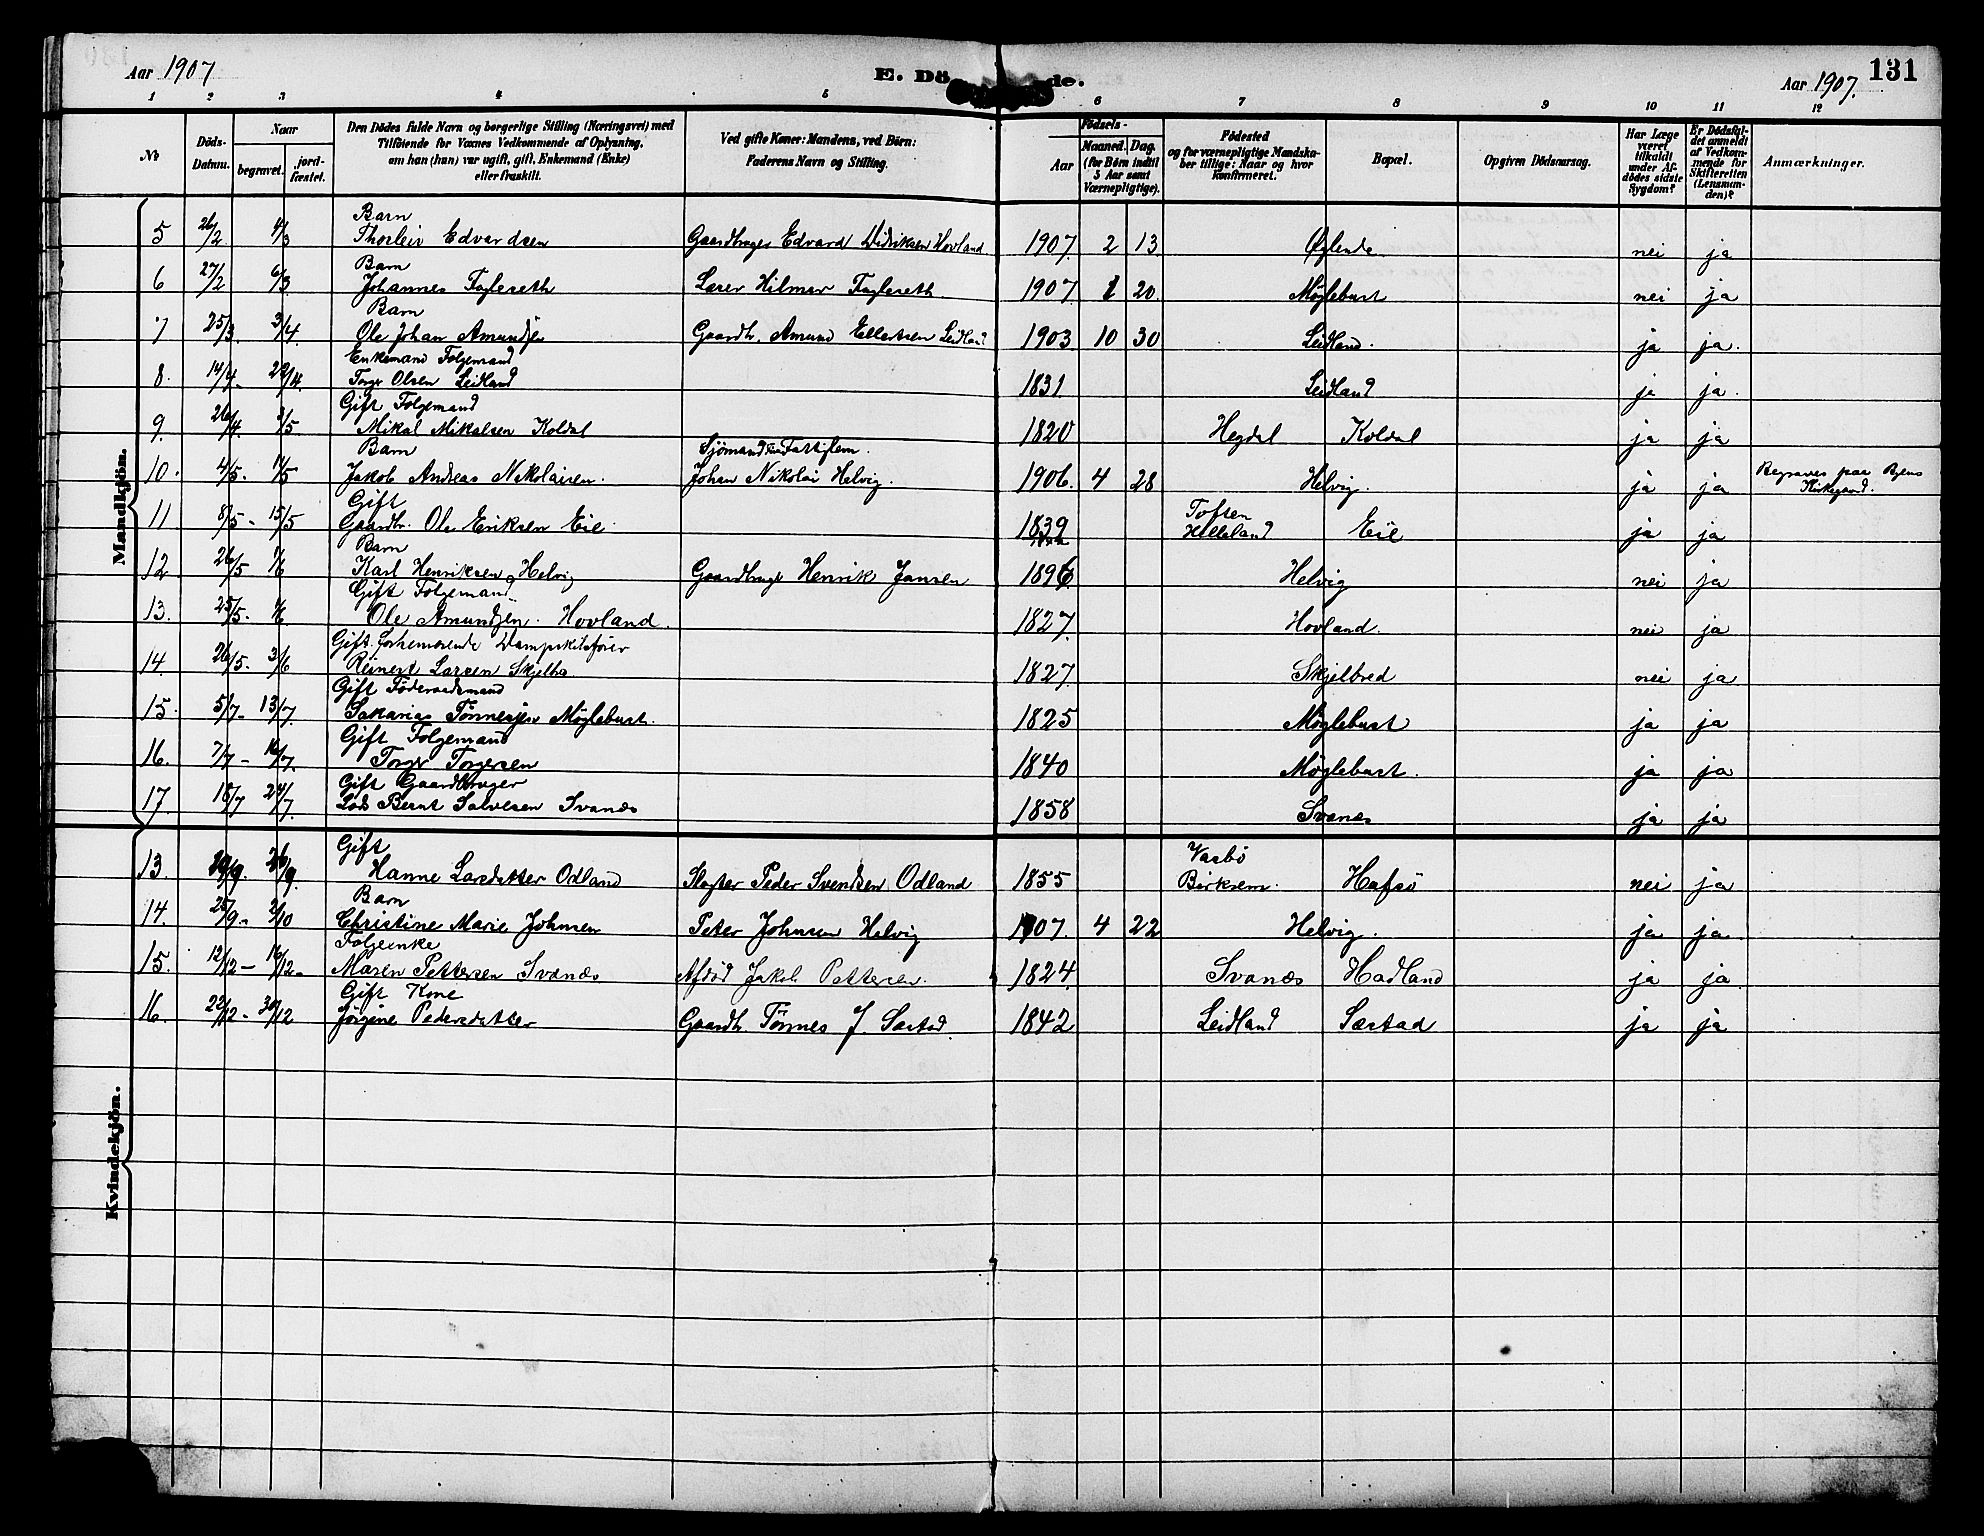 Aar 1907
E. Dö
de.
Aar 1907.
131
1 2 3 4 5 6 7 8 9 10 11 12
No
Döds-Datum.
Naar
begravet.
jord-fæstet.
Den Dödes fulde Navn og borgerlige Stilling (Næringsvei) med
Tilföiende for Voxnes Vedkommende af Oplysning,
om han (hun) var ugift, gift, Enkemand (Enke)
eller fraskilt.
Ved gifte Koner: Mandens, ved Börn:
Faderens Navn og Stilling.
Födsels-
Aar
Maaned. Dag.
(for Börn indtil
5 Aar samt
Værnepligtige).
Födested
og for værnepligtige Mandska-
ber tillige: Naar og hvor
konfirmeret.
Bopæl.
Opgiven Dödsaarsag.
Har Læge
været
tilkaldt
under Af-
dödes sidste
Sygdom?
Er Dödsfal-
det anmeldt
af Vedkom-
mende for
Skifteretten
(Lensman-
den)?
Anmærkninger.
Mandkjön.
Barn
5 26/2 4/3 Thorleiv Edvardsen Gaardbruger Edvard Didriksen Hovland 1907 2 13 Øglende nei ja
Barn
6 27/2 6/3 Johannes Faglereth Lærer Hilmar Faglereth. 1907 1 20 Møglebust nei ja
Barn
7 25/3 3/4. Ole Johan Amundsen Gaardb. Amund Ellertsen Leidland 1903 10 30 Leidland. ja ja.
Enkemand Folgemand
8. 14/4- 22/4. Torger Olsen Leidland 1831 Leidland ja ja.
Gift Folgemand
9. 26/4. 3/5. Mikal Mikalsen Koldal 1820 Hegdal Koldal ja ja
Barn Sjömand
10. 4/5. 11/5 Jakob Andreas Nikolaisen. Johan Nikolai Helvig. 1906. 4 28 Helvig. ja ja Begraves paa Byens
Kirkegaard.
Gift
11 8/5- 15/5 Gaardb. Ole Eriksen Eie 1839 Tofsen
Helleland Eie ja ja
Barn
12 26/5 1/6 Karl Henriksen Helvig Gaardbruger Henrik Jansen 1896 Helvig nei ja
Gift Folgemand
13. 25/5. Ole Amundsen. Hovland. 1827. Hovland. nei ja
Gift. forhenværende Dampskibsfører
14. 26/5. 3/6 Reinert Larsen Skjelbre 1827. Skjelbred nei ja
Gift Föderaadsmand
15. 5/7- 13/7 Sakarias Tönnesen Møglebust. 1825 Møglebust ja ja
Gift Folgemand
16. 7/7- 16/7. Torger Torgersen 1840 Møglebust. ja ja
Gift Gaardbruger
17. 18/7 24/7. Lods Bernt Salvesen Svanæs 1858 Svanes ja ja
Kvindekjön.
Gift Vasbö
13. 19/9. 26/9. Hanne Larsdatter Odland Slagter Peder Svendsen Odland 1855 Birkrem. Hafsö nei ja
Barn
14. 25/9- 2/10 Christine Marie Johnsen Peter Johnsen Helvig 1907. 4 22 Helvig. ja ja.
Folgeenke
15. 12/12- 16/12- Maren Pettersen Svanæs Afdød Jakob Pettersen. 1824. Svanæs Hadland ja ja.
Gift Kone
16. 22/12- 30/12 Jörgine Pedersdatter Gaardb. Tönnes J. Sæstad. 1842 Leidland Sæstad ja ja